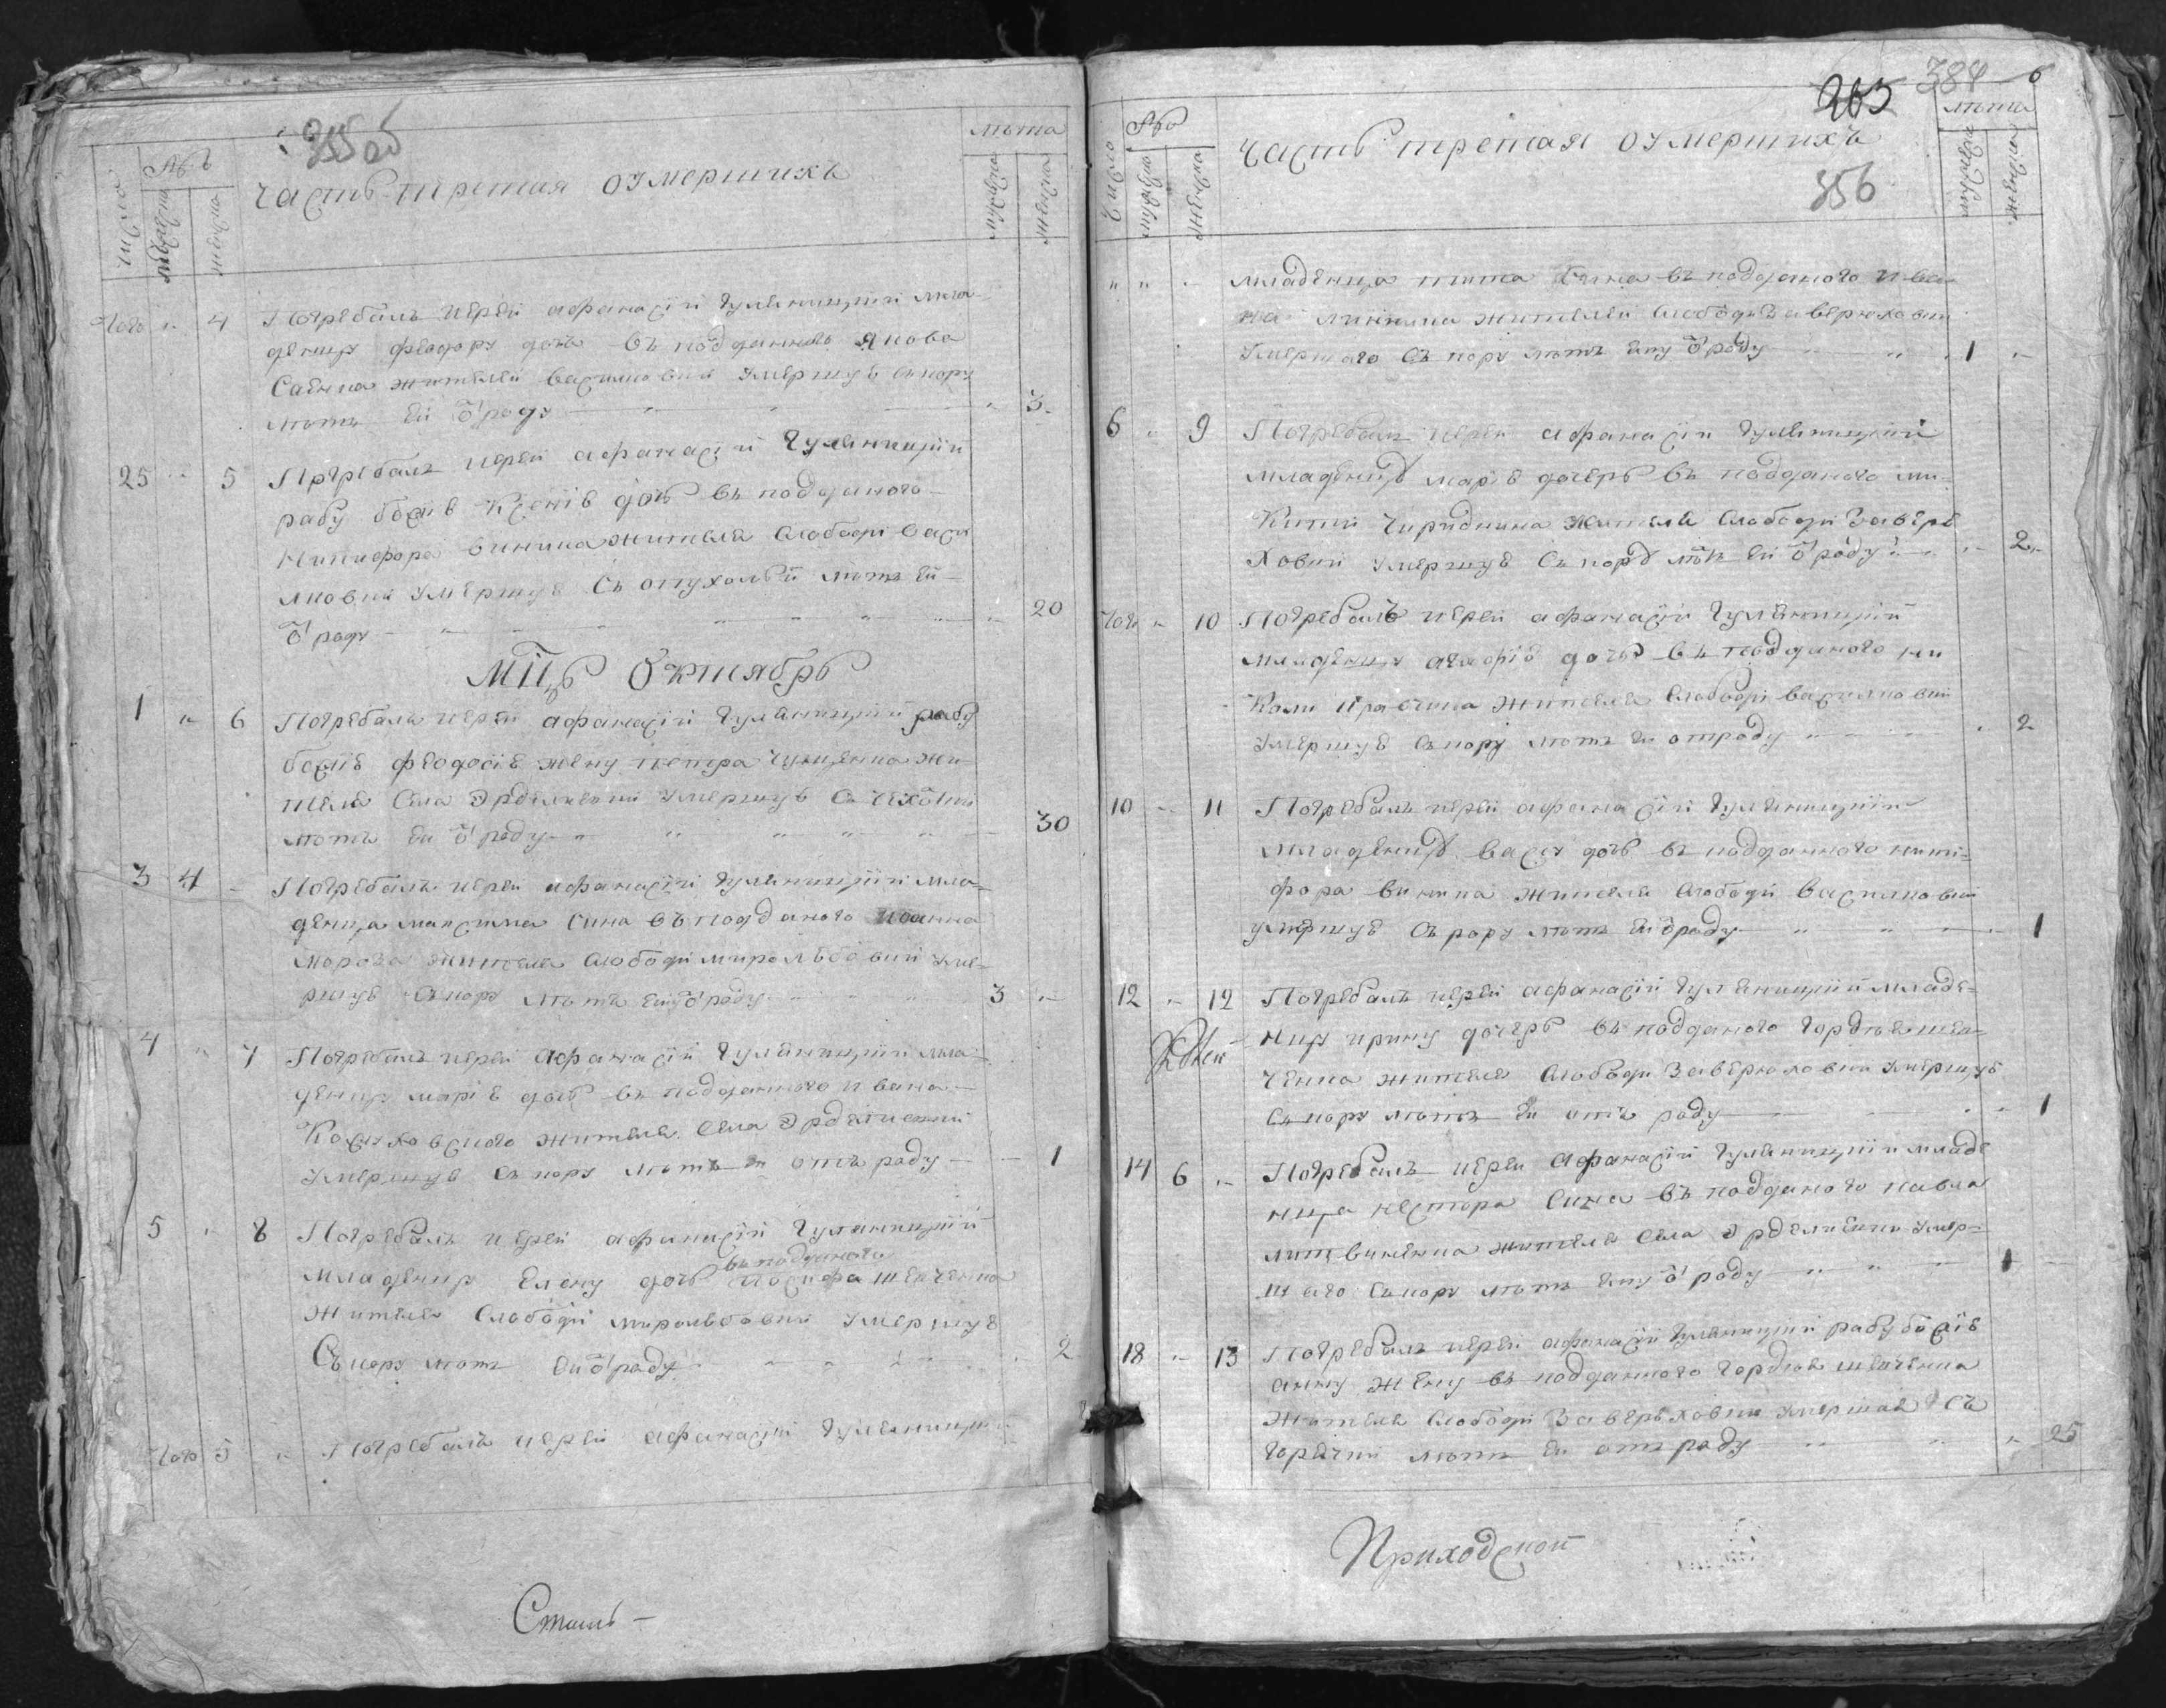 355об
Число
№ъ
мужеска
женска
Часть третая о умершихъ
лѣта
мужеска
женска
Того " 4 Погребалъ иерей Афанасій Гуляницкій мла-
денцу Феодору дочъ въ подданнаго Якова
жителей Василковки умершуѣ съ кору
лѣтъ ей ѿ роду " " " 3
25 " 5 Погребалъ иерей Афанасій Гуляницкій
рабу божіѣ Ксенію дочъ въ подданого
Никифора Виника жителя слободи Васи
лковки умершуѣ съ опухолѣй лѣтъ ей
ѿ роду " " " 20
Мцъ Октябрь
1 " 6 Погребалъ иерей Афанасій Гуляницкій рабу
божіѣ Феодосіѣ жену Петра жи-
теля села Эрделиевки умершуѣ съ
лѣтъ ей ѿ роду " " " 30
3 4 - Погребалъ иерей Афанасій Гуляницкій мла-
денца Максима сина въ подданого Иоанна
Мороза жителя слободи Миролюбовки уме-
ршуѣ съ кору лѣтъ ему ѿ роду " " 3 "
4 " 7 Погребалъ иерей Афанасій Гуляницкій мла-
денцу Маріѣ дочъ въ подданного Ивана
жителя села Эрделиевки
умершуѣ съ кору лѣтъ ей отъ роду - - 1
5 " 8 Погребалъ иерей Афанасій Гуляницкій
въ подданого
младенцу Елену дочъ Иосифа Шевченка
жителя слободи Миролюбовки умершуѣ
съ кору лѣтъ ей ѿ роду " " " 2
Того 5 " Погребалъ иерей Афанасій Гуляницкій
Сталъ -
265 384 6
Число
№ъ
мужеска
женска
Часть третая о умершихъ
356
лѣта
мужеска
женска
" " - младенца Тита сина въ подданого Ива
на жителя слободи Заверюховки
умершаго съ кору лѣтъ ему ѿ роду " " 1 "
6 " 9 Погребалъ иерей Афанасій Гуляницкій
младенцу Маріѣ дочерь въ подданого Ми-
китий жителя слободи Заверю
ховки умершуѣ съ кору лѣтъ ей ѿ роду " " 2 "
Того " 10 Погребалъ иерей Афанасій Гуляницкій
младенцу Агафіѣ дочъ въ подданого Ни
коли жителя слободи Василковки
умершуѣ съ кору лѣтъ ей отроду " " 2
10 - 11 Погребалъ иерей Афанасій Гуляницкій
младенцу Вассу дочъ въ подданного Ники-
фора Виника жителя слободи Василковки
умершуѣ съ кору лѣтъ ей ѿ роду " " 1
12 " 12 Погребалъ иерей Афанасій Гуляницкій младе-
нцу Ирину дочерь въ подданого Гордѣя Шев-
ченка жителя слободи Заверюховки умершуѣ
съ кору лѣтъ ей отъ роду " 1
14 6 " Погребалъ иерей Афанасій Гуляницкій младе
нца Нестора сина въ подданого Павла
Литвиненка жителя села Эрделиевки умер-
шаго съ кору лѣтъ ему ѿ роду " " 1
18 " 13 Погребалъ иерей Афанасій Гуляницкій рабу божіѣ
Анну жену въ подданного Гордѣя Шевченка
жителя слободи Заверюховки умершаѣ съ
горячки лѣтъ ей отъ роду " " " 25
Приходской